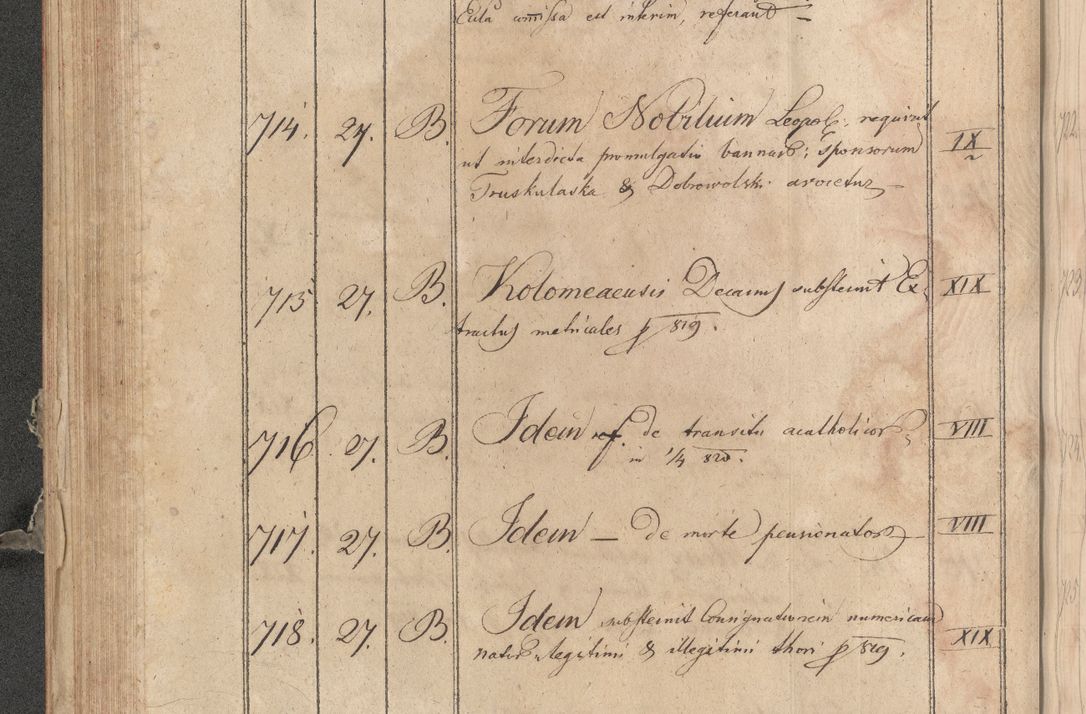 Ecta comissa est interim, referant
714. 27. B. Forum Nobilium Leopol: requirit IX
ut interdicta promulgatio bannor: sponsorum
Truskulaska & Dobrowolski avocetur
715 27. B. Kolomeaensis Decanus substernit Ex- XIX
tractus metricales p 819.
716. 27. B. Idem ref. de transitu acatholicor VIII
in 1/4 820.
717. 27. B. Idem — de morte pensionator VIII
718. 27. B. Idem substernit Consignationem numericam XIX
nator legitimi & illegitimi thori p 819.
722
723
724
725